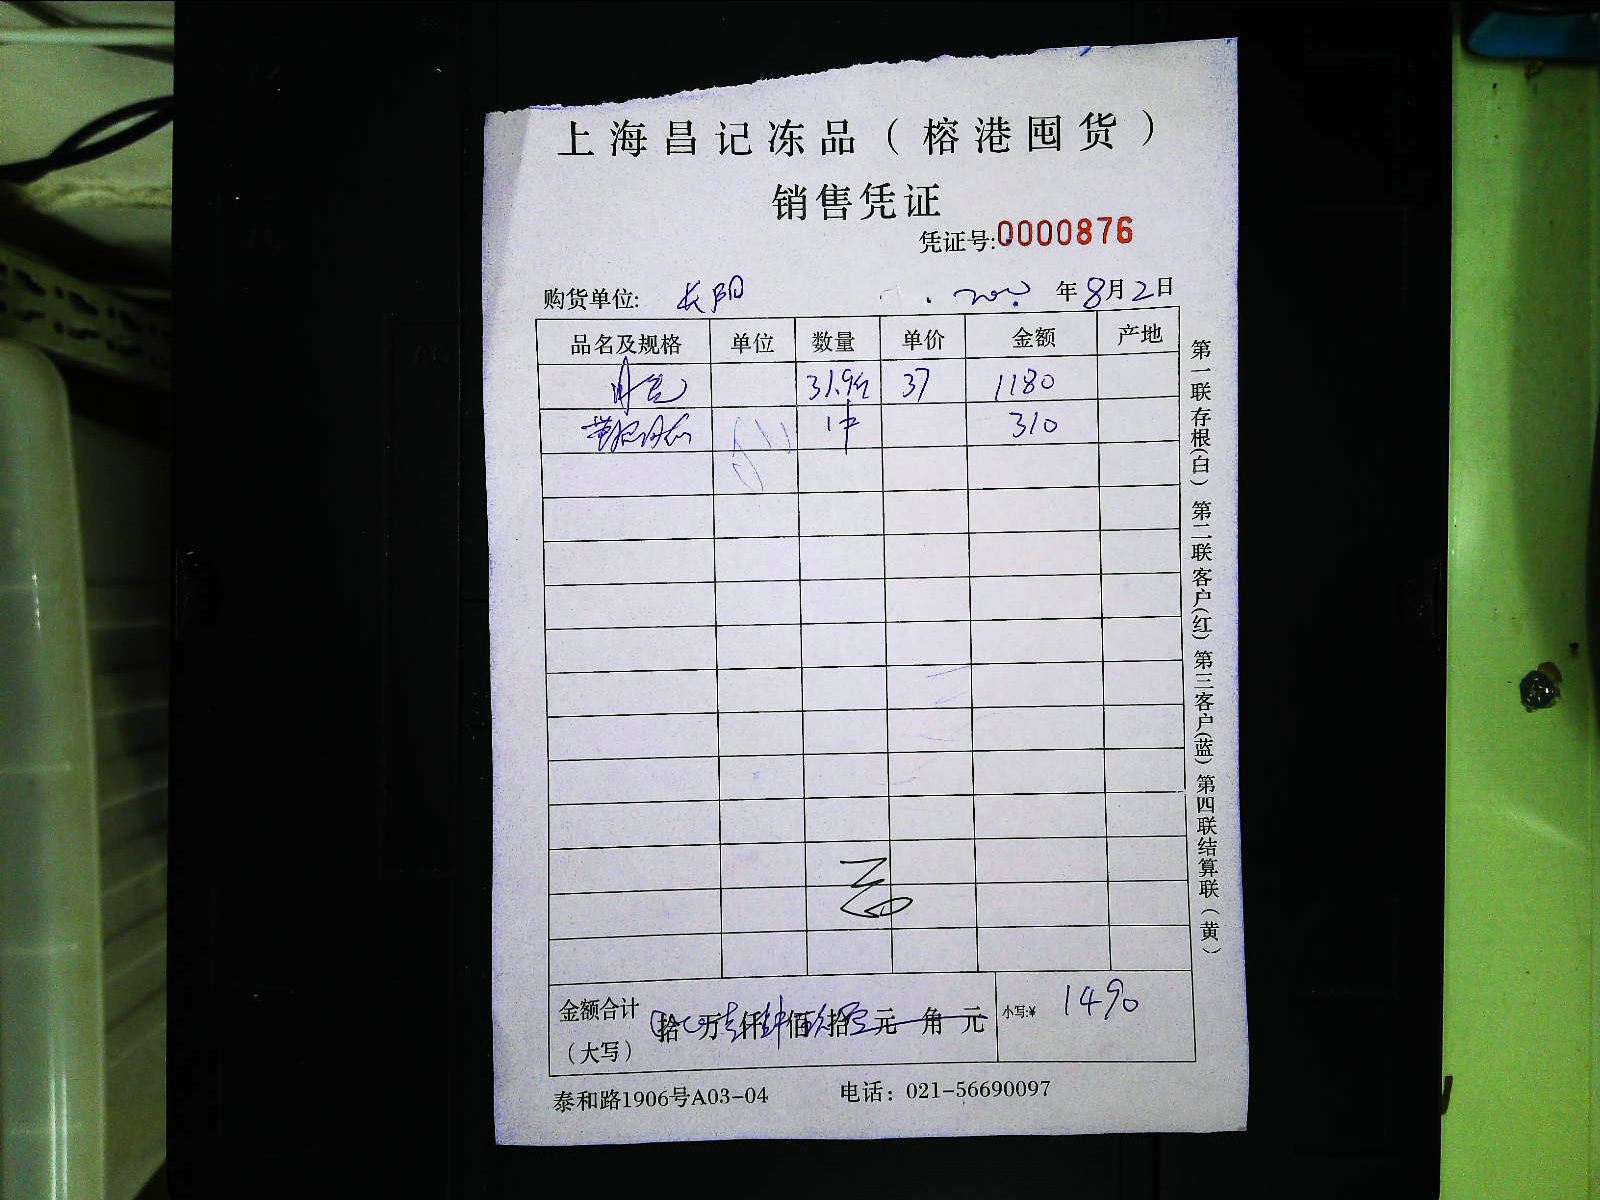 上海昌记冻品（榕港囤货）
销售凭证
凭证号:0000876
购货单位: 长阳 年8月2日
品名及规格 单位 数量 单价 金额 产地
31.9斤 37 1180
1件 310
金额合计（大写） 拾 万 仟 佰 拾 元 角 元 小写:¥ 1490
泰和路1906号A03-04 电话：021-56690097
第一联存根(白) 第二联客户(红) 第三客户(蓝) 第四联结算联（黄）